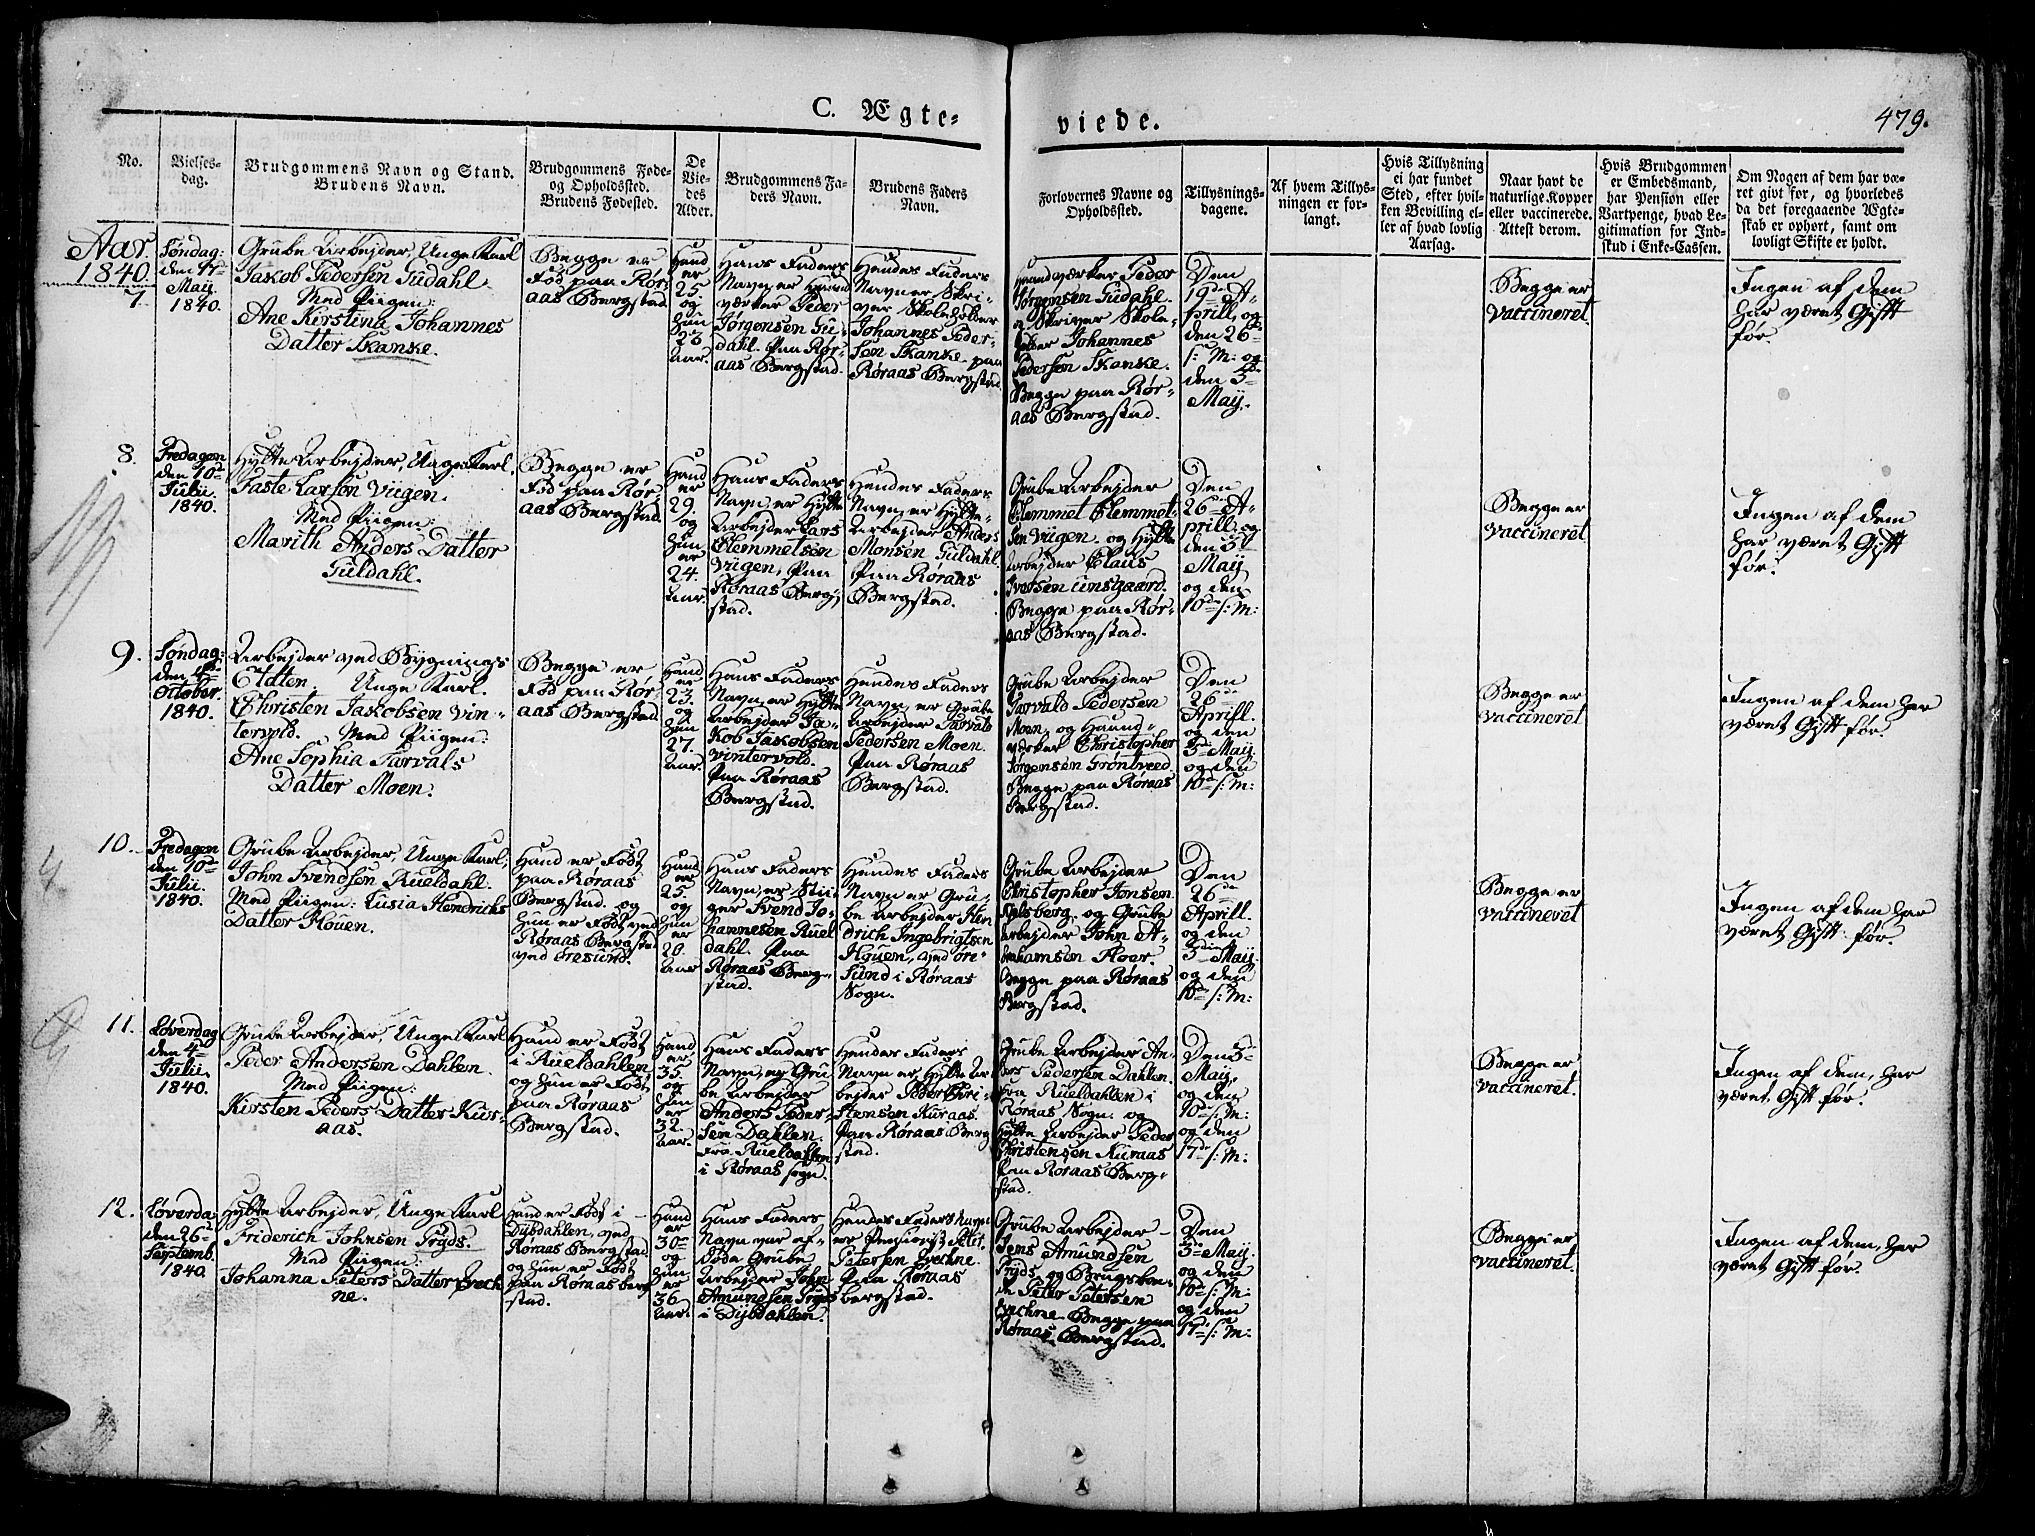 C. Ægte-
viede.
479.
No.
Vielses-
dag.
Brudgommens Navn og Stand.
Brudens Navn.
Brudgommens Føde-
og Opholdssted.
Brudens Fødested.
De
Vie-
des
Alder.
Brudgommens Fa-
ders Navn.
Brudens Faders
Navn.
Forlovernes Navne og
Opholdssted.
Tillysnings-
dagene.
Af hvem Tillys-
ningen er for-
langt.
Hvis Tillysning
ei har fundet
Sted, efter hvil-
ken Bevilling el-
ler af hvad lovlig
Aarsag.
Naar havt de
naturlige Kopper
eller vaccinerede.
Attest derom.
Hvis Brudgommen
er Embedsmand,
har Pension eller
Vartpenge, hvad Le-
gitimation for Ind-
skud i Enke-Cassen.
Om Nogen af dem har væ-
ret givt før, og hvorledes
da det foregaaende Ægte-
skab er ophørt, samt om
lovligt Skifte er holdt.
Aar.
1840.
7.
Søndag:
den
May
1840.
Grube Arbejder, Unge Karl
Jakob Pedersen Sudahl
Med Piigen:
Ane Kirstina Johannes
Datter Skanke.
Begge er
Fød paa Rør-
aas Bergstad.
Hand
er
25
og
hun
23
Aar.
Hans Faders
Navn er Haand
værker Peder
Jørgensen Su-
dahl. Paa Rør-
aas Bergstad.
Hendes Faders
Navn er Skri-
ver Skoleholder
Johannes Peder-
sen Skanke paa
Røraas Bergstad.
Haandværker Peder
Jørgensen Sudahl.
Skriver Skole-
holder Johannes
Pedersen Skanke.
Begge paa Rør-
aas Bergstad.
Den
19de A-
prill, og
den 26de
s: M: og
den 3de
May.
Begge er
vaccineret.
Ingen af dem
har været Gift
før.
8.
Fredagen
den 10de
Julii.
1840.
Hytte Arbejder, Unge Karl.
Taste Larsen Viigen.
Med Piigen:
Marith Anders Datter
Guldahl.
Begge er
Fød paa Rør-
aas Bergstad.
Hand
er
29.
og
hun
er
24.
Aar.
Hans Faders
Navn er Hytte
Arbejder Lars
Clemmetsen
Viigen, Paa
Røraas Berg-
stad.
Hendes Faders
Navn er Hytte-
Arbejder Anders
Monsen Guldahl.
Paa Røraas
Bergstad.
Grube Arbejder
Clemmet Clemmet-
sen Viigen og Hytte
Arbejder Claus
Iversen
Begge paa Rør-
aas Bergstad.
Den
26de A-
prill, og
den 3de
May
og den
10de s: M:
Begge er
vaccineret
Ingen af dem
har været Gift
før.
9.
Søndag:
den 4de
October.
1840.
Arbejder ved Bygnings
Etaten. Unge Karl.
Christen Jakobsen Vin-
tervold. Med Piigen:
Ane Sophia Tarvals
Datter Moen.
Begge er
Fød paa Rør-
aas Bergstad
Hand
er
23.
og
hun
27.
Aar.
Hans Faders
Navn er Hytte
Arbejder Ja-
kob Jakobsen
Vintervold.
Paa Røraas
Bergstad.
Hendes Faders
Navn er Grube
Arbejder Tarvald
Pedersen Moen.
Paa Røraas
Bergstad.
Grube Arbejder
Tarvald Pedersen
Moen, og Haand-
værker Christopher
Jørgensen Grøntveed
Begge paa Røraas
Bergstad.
Den
26de
Aprill.
og den
3de May.
og den
10de s: M:
Begge er
vaccineret
Ingen af dem har
været Gift før.
10.
Fredagen
den 10de
Julii.
1840.
Grube Arbejder, Unge Karl,
John Svendsen Rueldahl.
Med Piigen: Lusia Hendrichs
Datter Houen.
Hand er Født
paa Røraas
Bergstad. og
hun er Født ved
Røraas Bergstad
ved Øresund.
Hand
er
25
og
hun
er
20.
Aar
Hans Faders
Navn er Stii-
ger Svend Jo-
hannesen Ruel
dahl. Paa
Røraas Berg-
stad.
Hendes Faders
Navn er Gru-
be Arbejder Hen
drich Ingebrigtsen
Houen, ved Øre-
Sund i Røraas
Sogn.
Grube Arbejder
Christopher Jonsen
og Grube
Arbejder John A-
brahamsen Floer.
Begge paa Røraas
Bergstad.
Den
26de
Aprill.
og den
3die May.
og den
10de s: M:
Begge er
vaccineret
Ingen af dem har
været Gift før.
11.
Løverdag
den 4de
Julii.
1840.
Grube Arbejder, Unge Karl
Peder Andersen Dahlen.
Med Piigen:
Kirsten Peders Datter Kur-
aas.
Hand er Født
i Rueldahlen
og hun er Født
paa Røraas
Bergstad.
Hand
er
35.
og
hun
er
32.
Aar.
Hans Faders
Navn, er Gru-
be Arbejder
Anders Peder-
sen Dahlen.
fra Rueldahlen
i Røraas sogn.
Hendes Faders
Navn er Hytte Ar
bejder Peder Chri-
stensen Kuraas.
Paa Røraas Berg
stad.
Grube Arbejder An-
ders Pedersen Dahlen.
fra Rueldahlen i
Røraas Sogn. og
Hytte Arbejder Peder
Christensen Kuraas
paa Røraas Berg-
stad.
Den 3de
May.
og den
10de s: M:
og den
17de s: M:
Begge er
vaccineret.
Ingen af dem, har
været Gift før.
12.
Løverda:
den 26de
Septemb.
1840.
Hytte Arbejder, Unge Karl
Friderich Johnsen Pryds.
Med Piigen:
Johanna Peters Datter Evech
ne.
Hand er Født i
Dybdahlen, ved
Røraas Bergstad
og hun er Født
paa Røraas berg
stad.
Hand
er
30
og
hun
er
36.
Aar.
Hans Faders
Navn var af-
døde Grube
Arbejder John
Amundsen Pryds
i Dybdahlen.
Hendes Faders Navn
er Pensionist
Petersen Evechne
Paa Røraas
bergstad.
Grube Arbejder
Jens Amundsen
Pryds, og
Peter Petersen
Evechne Begge paa
Røraas Bergstad.
Den
3de May.
og den
10de s: M:
og den
17de s: M:
Begge er
vaccineret.
Ingen af dem, har
været Gift før.